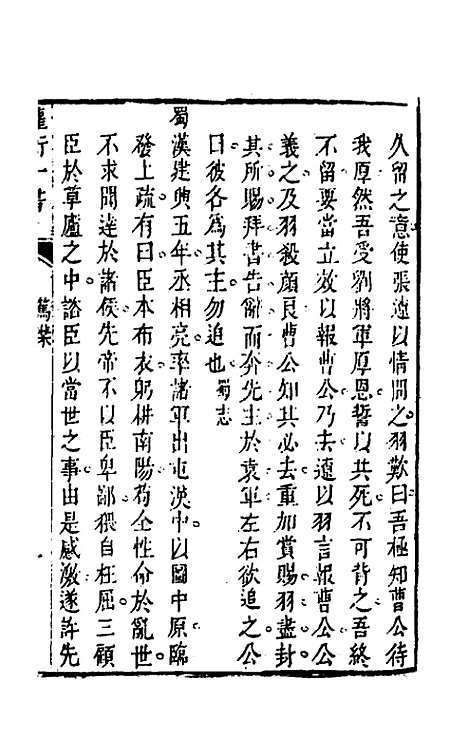 久留之意使張遼以情問之羽歎曰吾極知曹公待
我厚然吾受劉將軍厚恩誓以共死不可背之吾終
不留要當立效以報曹公乃去遼以羽言報曹公公
義之及羽殺顏良曹公知其必去重加賞賜羽盡封
其所賜拜書告辭而奔先主於袁軍左右欲追之公
曰彼各為其主勿追也 蜀志
蜀漢建興五年丞相亮率諸軍出屯漢中以圖中原臨
發上疏有曰臣本布衣躬耕南陽苟全性命於亂世
不求聞達於諸侯先帝不以臣卑鄙猥自枉屈三顧
臣於草廬之中諮臣以當世之事由是感激遂許先